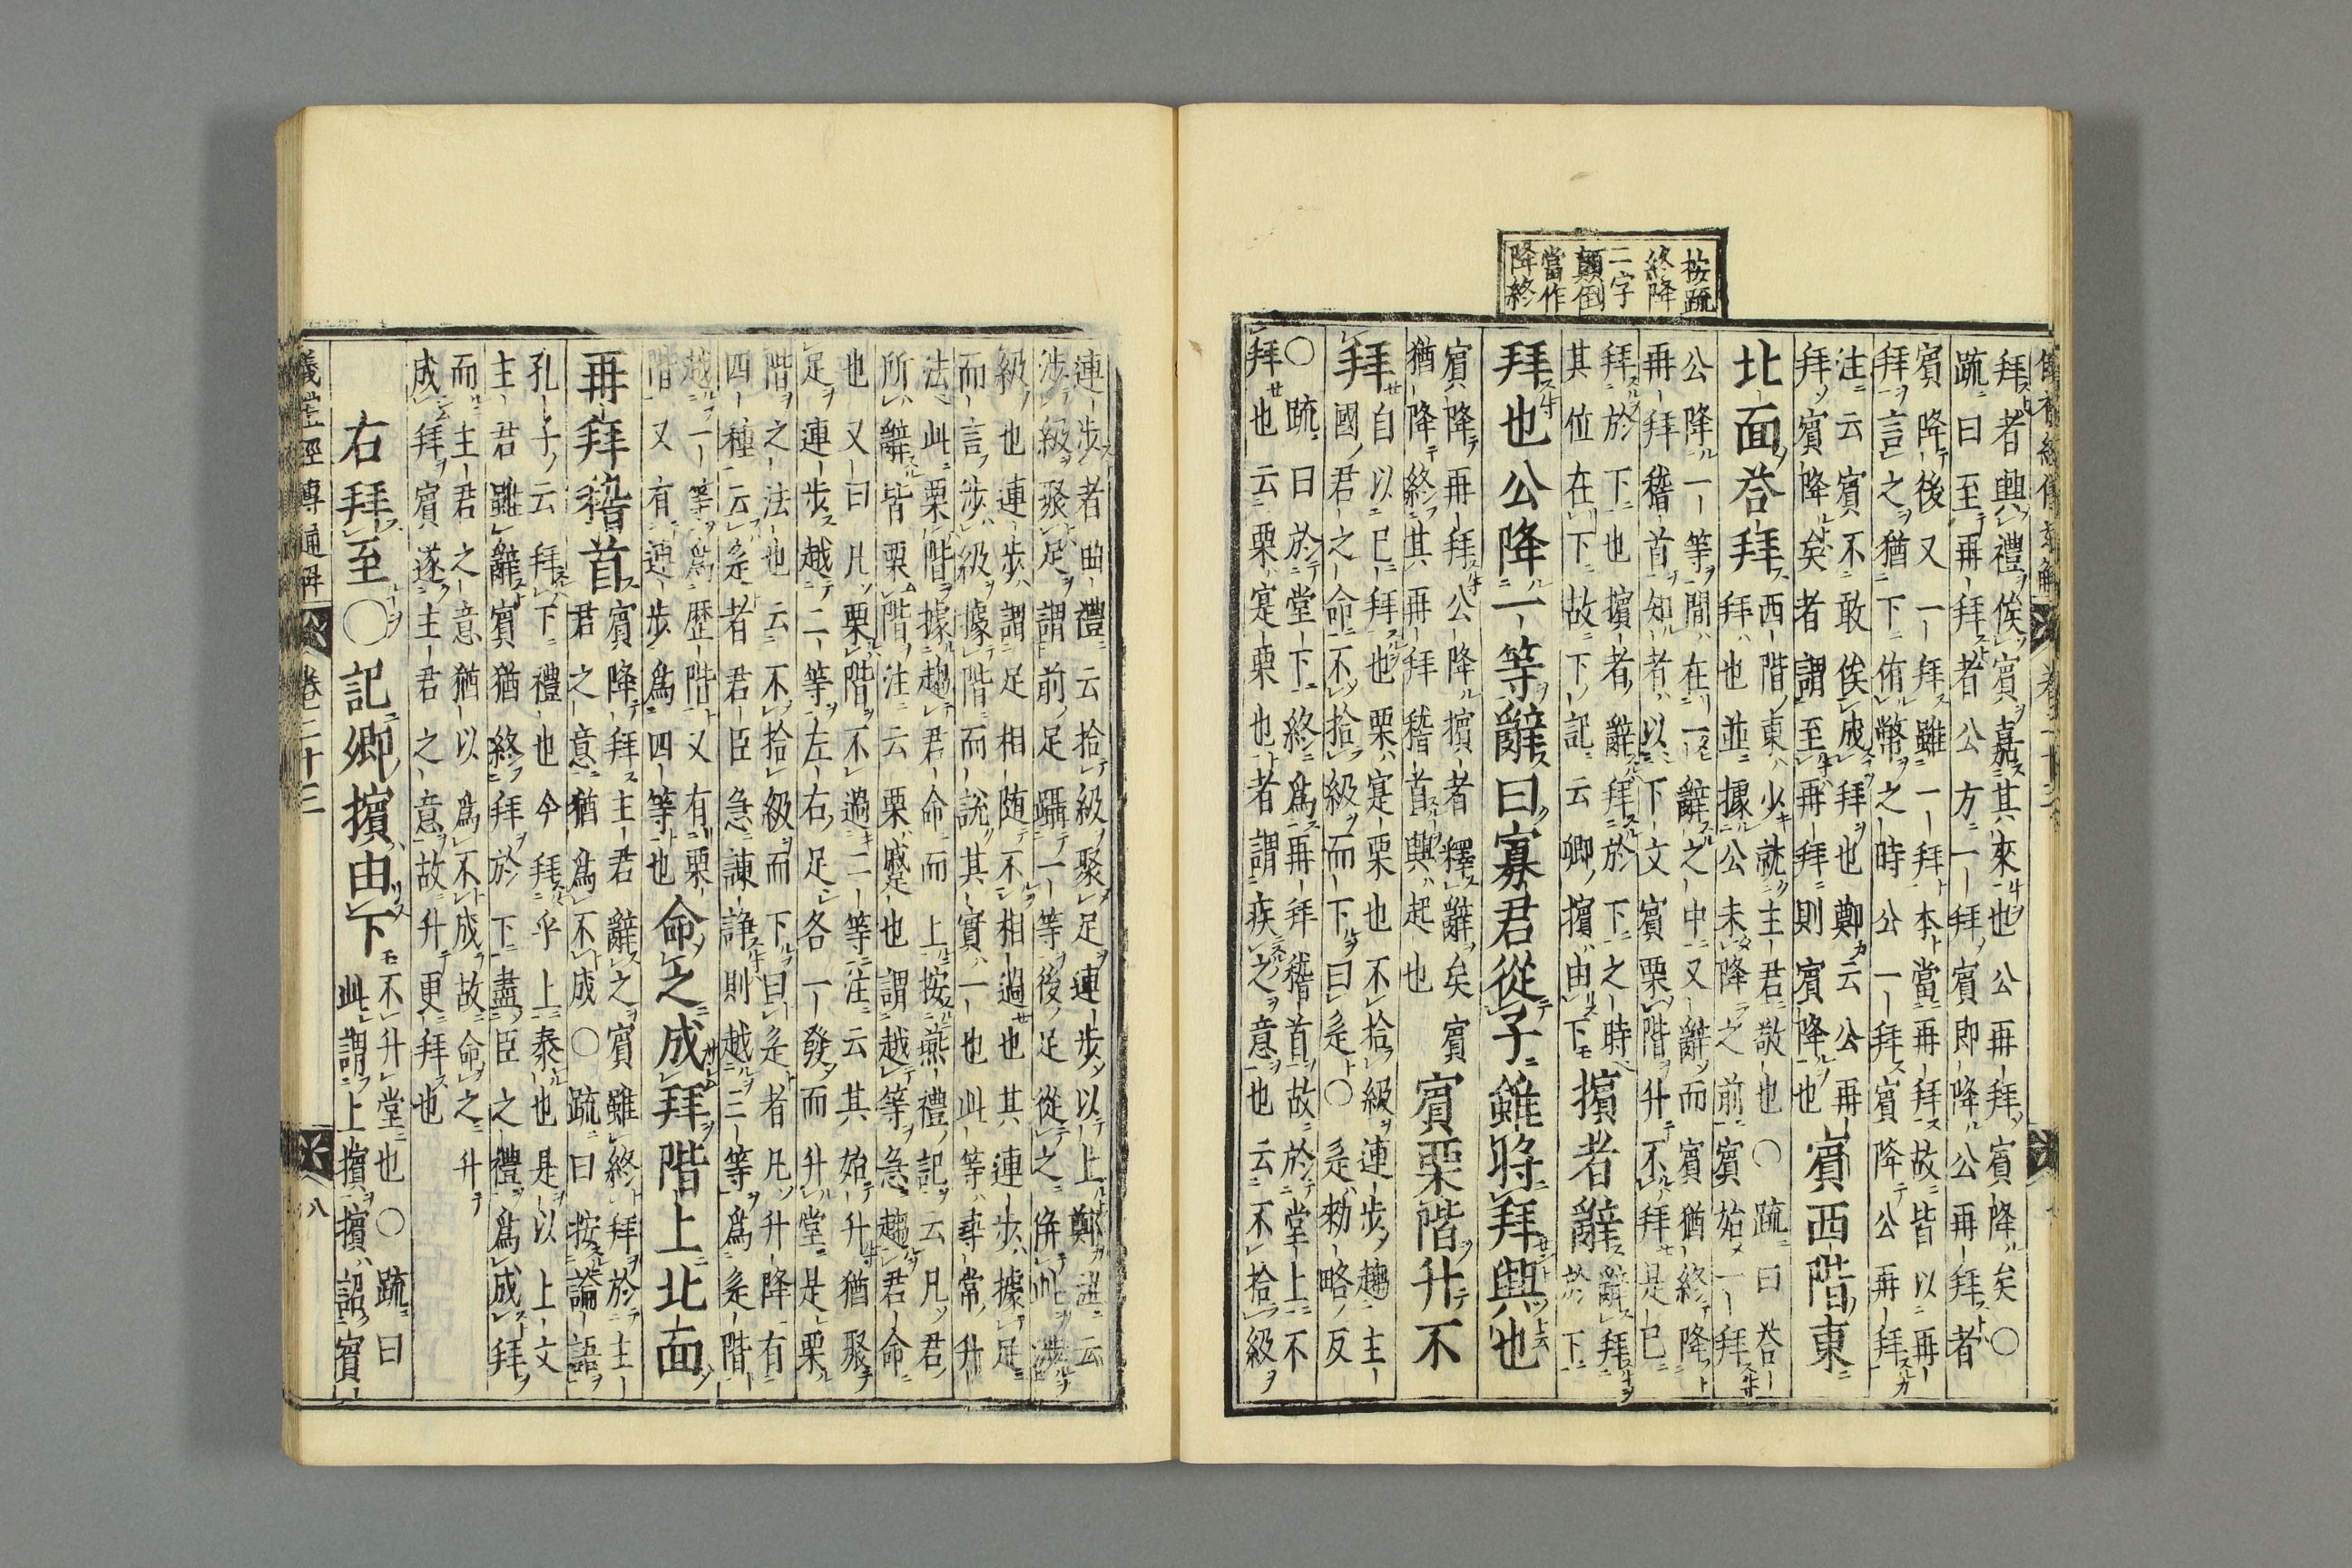 按疏
終降
二字
顛倒
當作
降終
拜者興禮俟賓嘉其來也公再拜賓降矣○
疏曰至再拜者公方一拜賓即降公再拜者
賓降後又一拜雖一拜本當再拜故皆以再
拜言之猶下侑幣之時公一拜賓降公再拜
注云賓不敢俟成拜也鄭云公再
拜賓降矣者謂至再拜則賓降也
賓西階東
北面荅拜
西階東少就主君敬也○疏曰荅
拜也並據公未降之前賓始一拜
公降一等間在一辭之中又辭而賓猶終降
再拜稽首知者以下文賓栗階升不拜是已
拜於下也擯者辭拜於下之時
其位在下故下記云卿擯由下
擯者辭
辭拜
於下
拜也公降一等辭曰寡君從子雖將拜興也
賓降再拜公降擯者釋辭矣賓
猶降終其再拜稽首興起也
賓栗階升不
拜
自以已拜也栗寔栗也不拾級連步趨主
國君之命不拾級而下曰辵○辵勑略反
○疏曰於堂下終爲再拜稽首故於堂上不
拜也云栗寔栗也者謂疾之意也云不拾級
連步者曲禮云拾級聚足連步以上鄭注云
涉級聚足謂前足躡一等後足從之併此涉
級也連步謂足相随不相過也其連步據足
而言涉級據階而說其實一也此等尋常升
法此栗階據趨君命而上按燕禮記云凡君
所辭皆栗階注云栗蹙也謂越等急趨君命
也又曰凡栗階不過二等注云其始升猶聚
足連步越二等左右足各一發而升堂是栗
階之法也云不拾級而下曰辵者凡升降有
四種云辵者君臣急諫諍則越三等爲辵階
越一等爲歷階又有栗
階又有連步爲四等也
命之成拜階上北面
再拜稽首
賓降拜主君辭之賓雖終拜於主
君之意猶爲不成○疏曰按論語
孔子云拜下禮也今拜乎上泰也是以上文
主君雖辭賓猶終拜於下盡臣之禮爲成拜
而主君之意猶以爲不成故命之升
成拜賓遂主君之意故升更拜也
右拜至○記卿擯由下
不升堂也○疏曰
此謂上擯擯詔賓
儀禮經傳通解
卷二十三
八